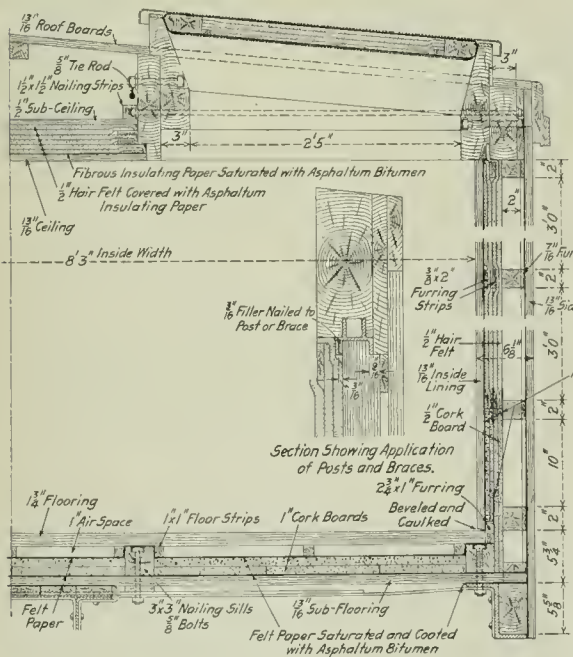 13/16" Roof Boards
5/8" Tie Rod
1 1/2" x 1 1/2" Nailing Strips
1/2" Sub-Ceiling
3"
3"
2'5"
Fibrous Insulating Paper Saturated with Asphaltum Bitumen
1/2" Hair Felt Covered with Asphaltum
Insulating Paper
13/16" Ceiling
8'3" Inside Width
2"
2"
3'0"
2"
3'0"
2"
10"
2"
5 3/4"
5 5/8"
7/16" Fur
3/8" x 2"
Furring
Strips
13/16" Sid
3/16" Filler Nailed to
Post or Brace
1/2" Hair
Felt
6 1/8"
13/16" Inside
Lining
1/2" Cork
Board
Section Showing Application
of Posts and Braces.
2 3/4" x 1" Furring
Beveled and
Caulked
1 3/4" Flooring
1" Air Space
1" x 1" Floor Strips
1" Cork Boards
Felt
Paper
3" x 3" Nailing Sills
5/8" Bolts
13/16" Sub-Flooring
Felt Paper Saturated and Coated
with Asphaltum Bitumen